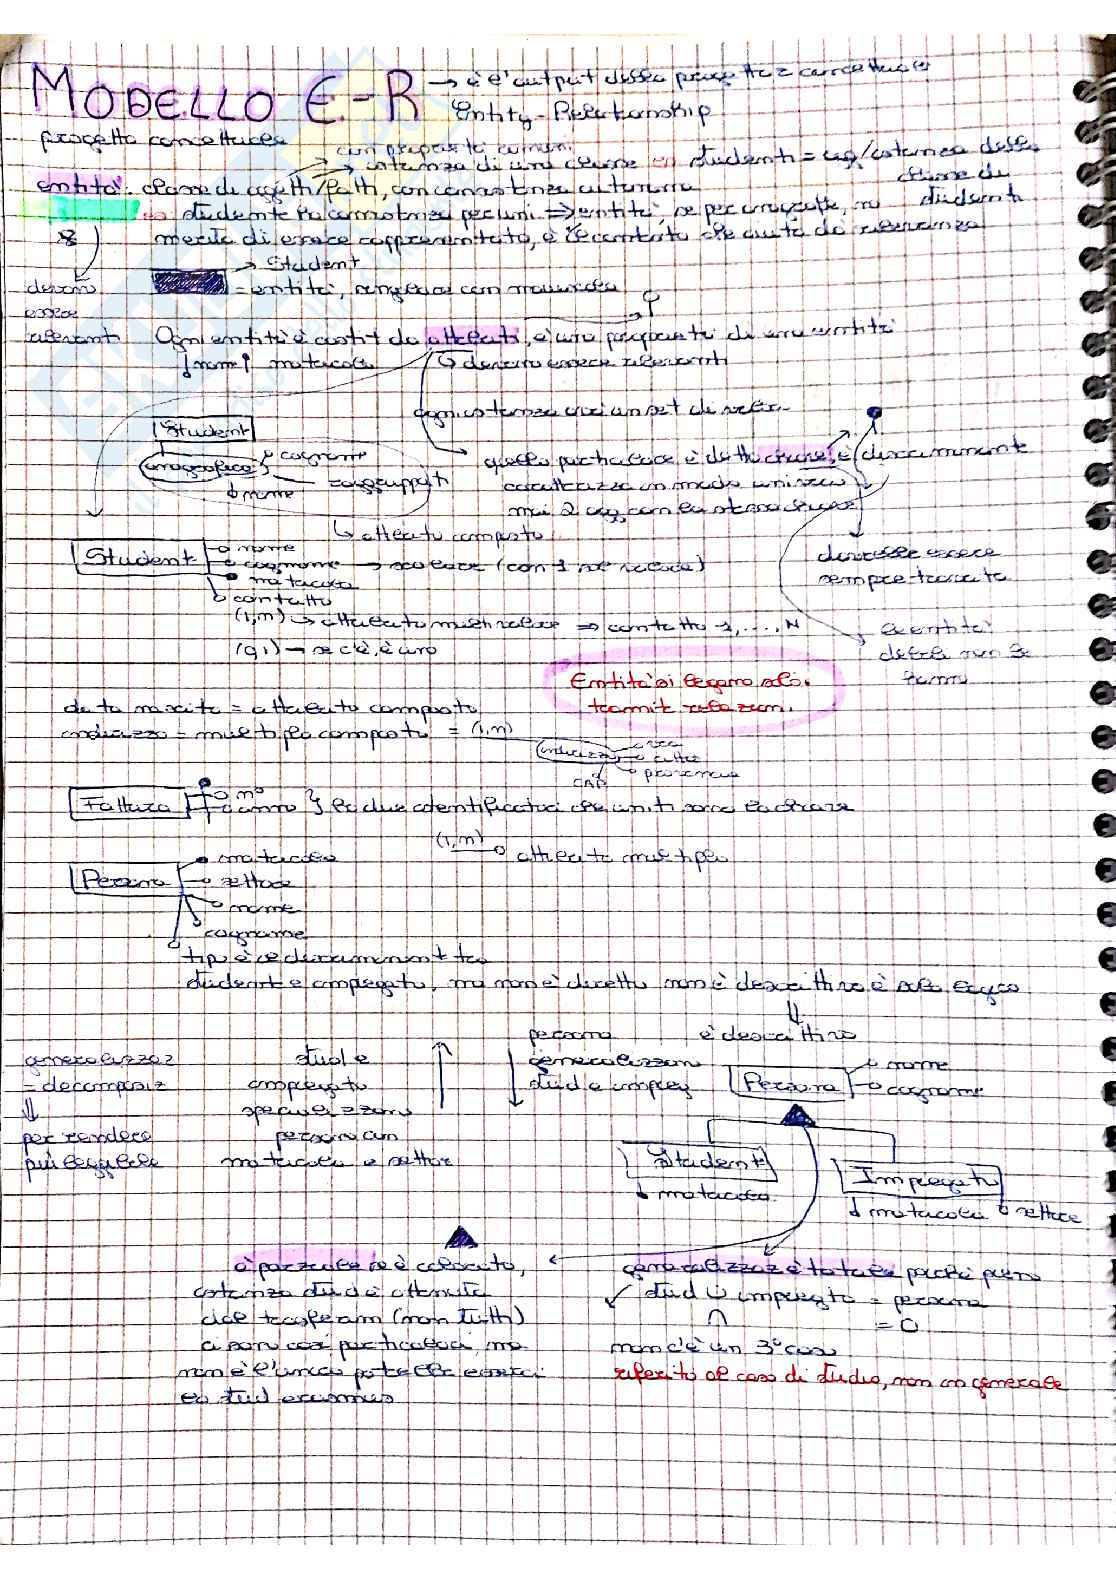 MODELLO E-R → è l'output della progettaz concettuale
Entity-Relationship
progetto concettuale
con proprietà comuni
entità: classe di oggetti/fatti, con consistenza autonoma
→ istanza di una classe es studenti = ogg/istanza della
classe di
studenti
es studente ha consistenza per uni ⇒ entità, se per anagrafe, no
merita di essere rappresentato, è il contesto che aiuta a da rilevanza
→ Student
devono
essere
rilevanti
= entità, singolare con maiuscola
Ogni entità è costit da attributi, è una proprietà di una entità
nome matricola
↳ devono essere rilevanti
ogni istanza avrà un set di valori
Studenti
anagrafica
cognome
nome
raggruppati
↳ attributo composto
quello particolare è detto chiave, è discriminante
caratterizza in modo univoco
mai 2 ogg con la stessa chiave
dovrebbe essere
sempre trovato
Studenti
nome
cognome → scalare (con 1 sol valore)
matricola
contatto
(1,n) → attributo multivalore ⇒ contatto 1, ...., N
(0,1) → se c'è, è uno
le entità
deboli non ce
l'hanno
Entità si legano solo
tramite relazioni.
data nascita = attributo composto
indirizzo = multiplo composto = (1,n)
indirizzo
via
città
provincia
CAP
Fattura
n°
anno } ho due identificatori che uniti sono la chiave
(1,n) attributo multiplo
Persona
matricola
settore
nome
cognome
tipo è il discriminante tra
studente e impiegato, ma non è diretto non è descrittivo è solo logico
⇓
è descrittivo
generalizzaz
= decomposiz
⇓
per rendere
più leggibile
stud e
impiegato
specializzano
persona con
matricola o settore
persona
generalizzano
stud e impieg
Persona
nome
cognome
Studenti
matricola
Impiegato
matricola
settore
è parziale se è colorato,
istanza stud è ottenuta
dal trasferim (non tutti)
ci sono casi particolari, ma
non è l'unica potrebbe esserci
lo stud erasmus
generalizzaz è totale perché posso
stud U impiegato = persona
∩ = 0
non c'è un 3° caso
riferito al caso di studio, non in generale